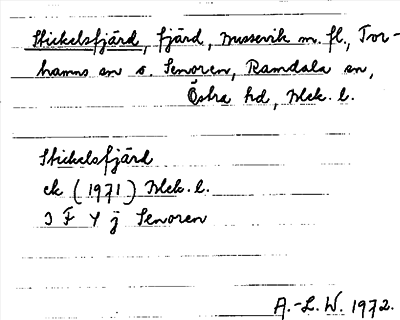 Stickelsfjärd, fjärd, Mussevik m. fl., Tor-
hamns sn o. Senoren, Ramdala sn,
Östra hd, Blek. l.
Stickelsfjärd
ek (1971) Blek. l.
3 F Y j Senoren
A.-L. W. 1972.